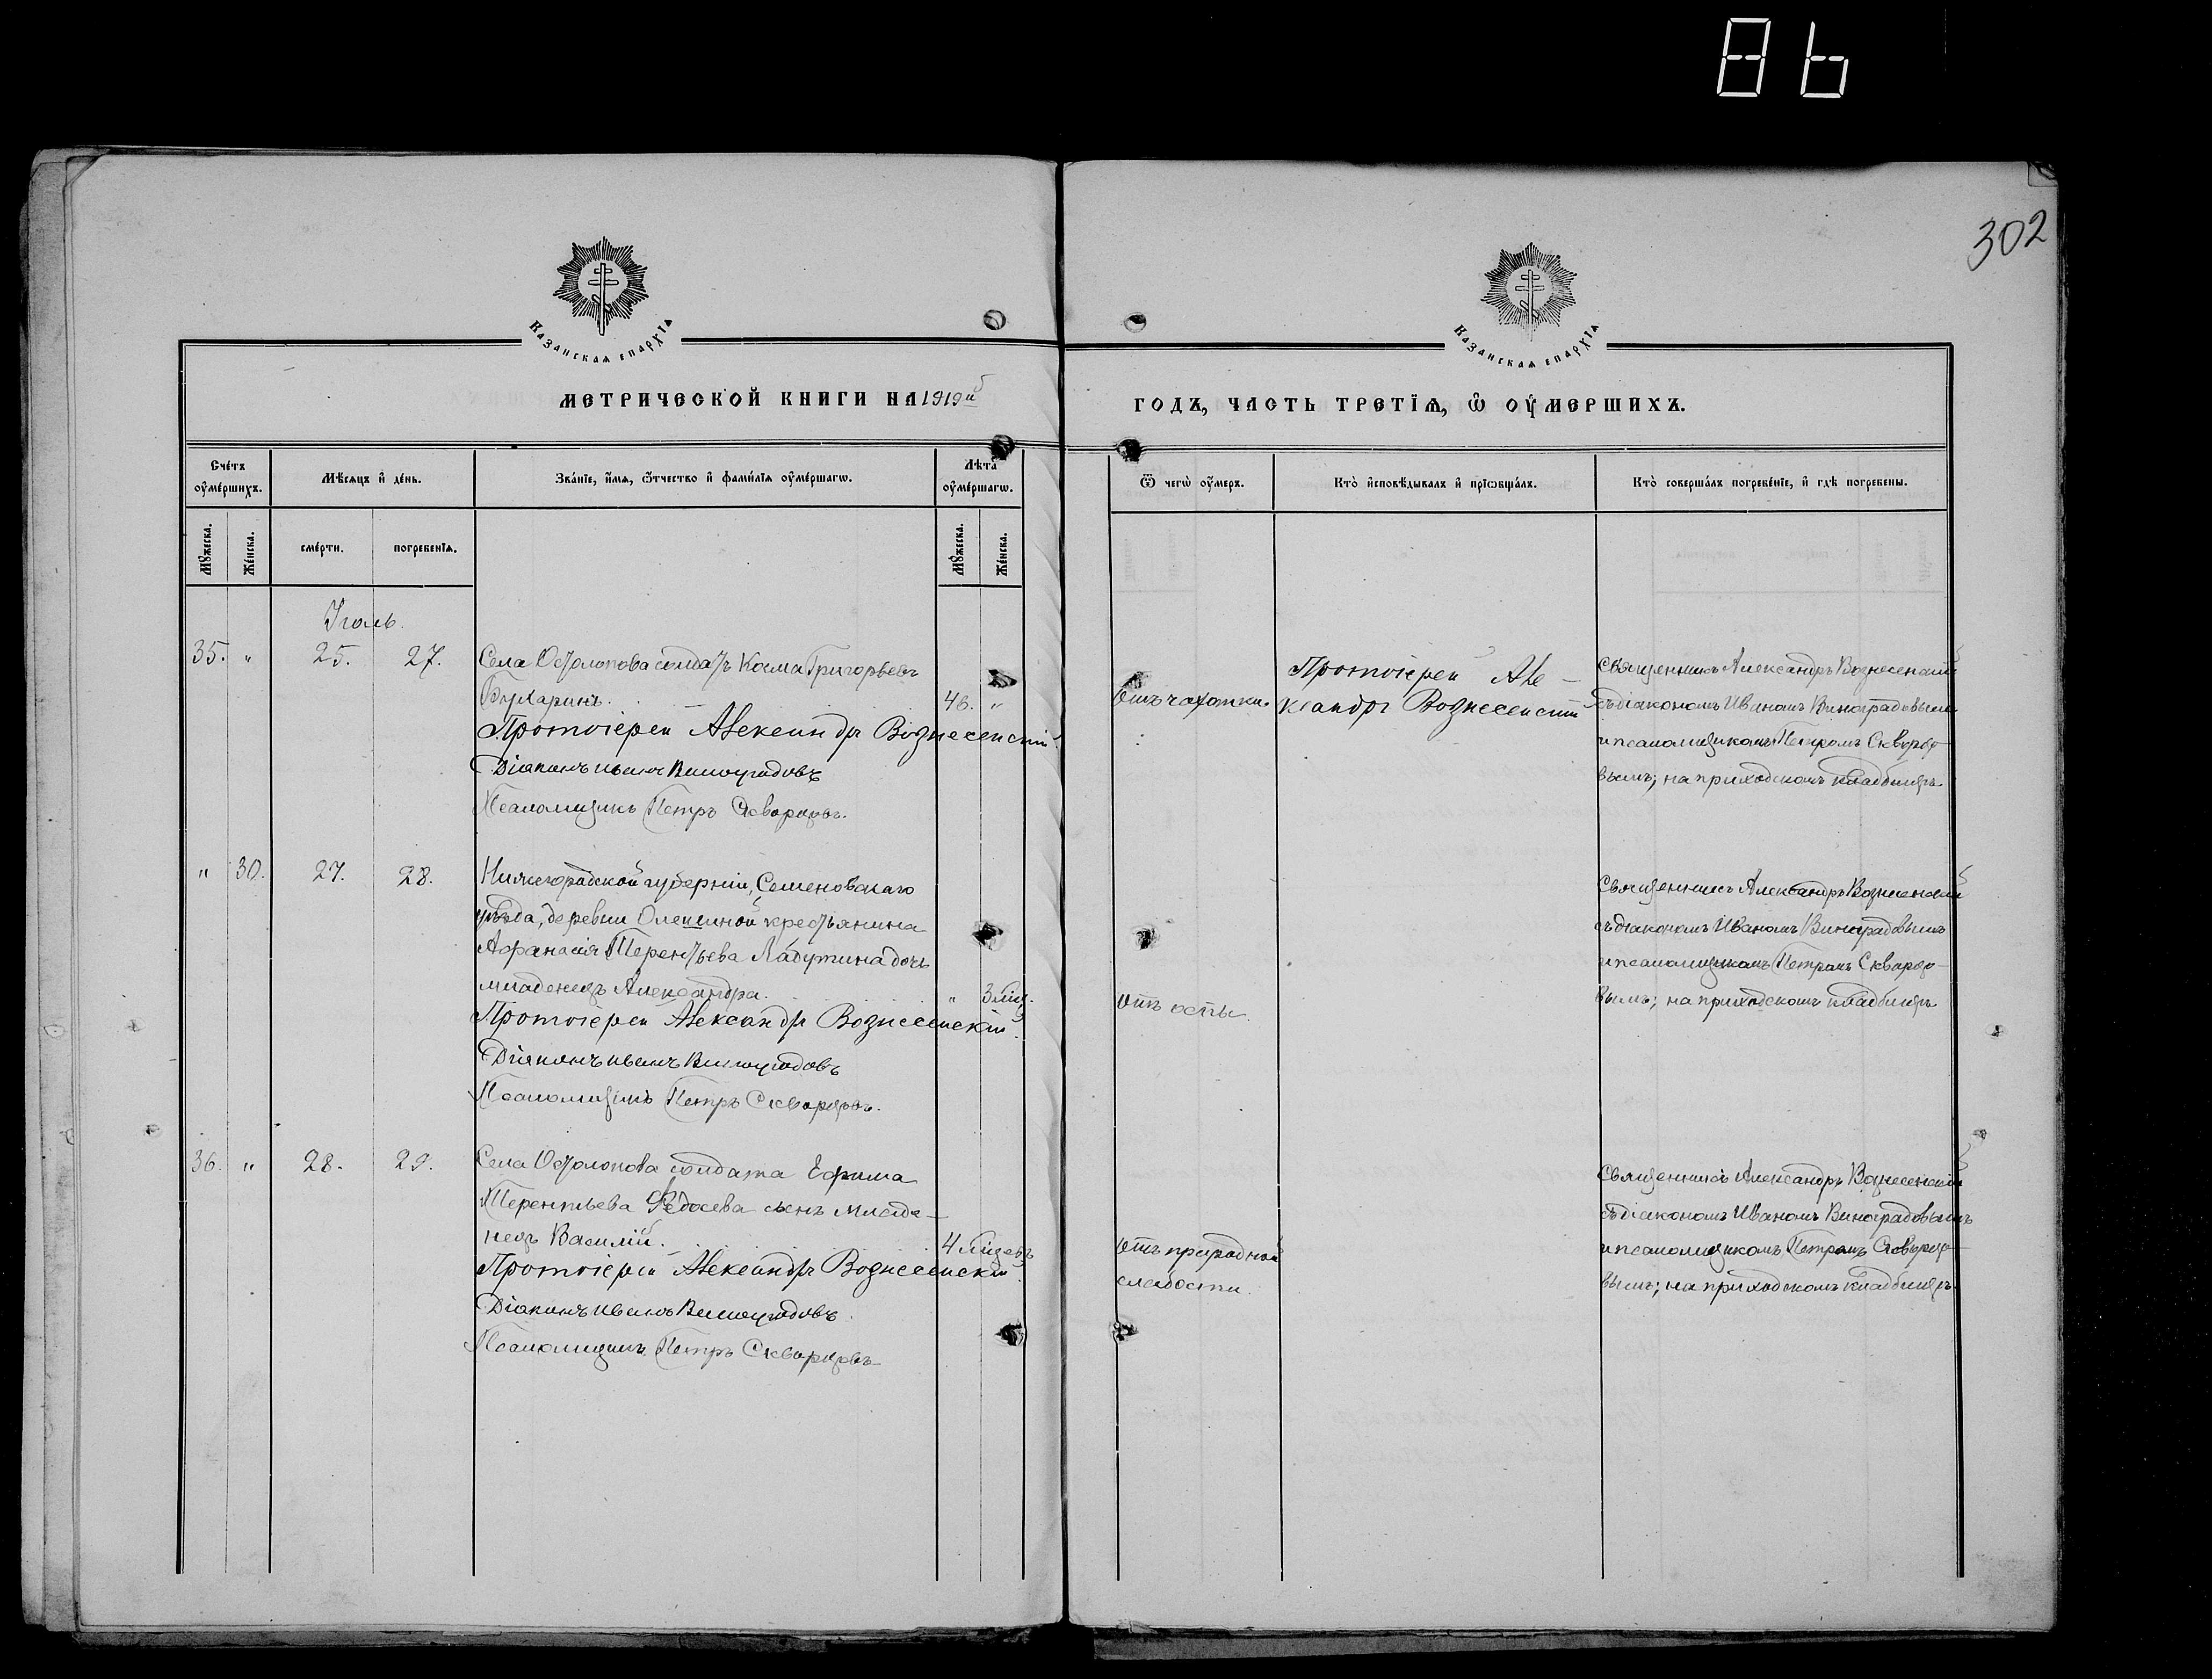 86
302
Казанская епархїѧ
Казанская епархїѧ
МЕТРИЧЕСКОЙ КНИГИ НА 1919й
ГОДЪ, ЧАСТЬ ТРЕТЇѦ, Ѡ ОУМЕРШИХЪ.
Счетъ оумершихъ.
Мѣсяцъ и день.
Званїе, имѧ, ѿчество и фамилїѧ оумершагѡ.
Лѣта оумершагѡ.
Ѿ чегѡ оумеръ.
Кто исповѣдывалъ и прїѡбщалъ.
Кто совершалъ погребенїе, и гдѣ погребены.
Мужеска.
Женска.
смерти.
погребенїѧ.
Мужеска.
Женска.
Іюль.
35. " 25. 27. Села Остолопова солдатъ Косма Григорьевъ
Бухаринъ. 46. "
Протоіерей Александръ Вознесенскій
Діаконъ Иванъ Виноградовъ
Псаломщикъ Петръ Скворцовъ.
Отъ чахотки
Протоіерей Але-
ксандръ Вознесенскій
Священникъ Александръ Вознесенскій
съ діакономъ Иваномъ Виноградовымъ
и псаломщикомъ Петромъ Скворцо-
вымъ; на приходскомъ кладбищѣ.
" 30. 27. 28. Нижегородской губерніи, Семеновскаго
уѣзда, деревни Олешиной крестьянина
Афанасія Терентьева Лабутина дочь
младенецъ Александра. " 3 мѣц.
Протоіерей Александръ Вознесенскій
Діаконъ Иванъ Виноградовъ
Псаломщикъ Петръ Скворцовъ.
Отъ оспы.
Священникъ Александръ Вознесенскій
съ діакономъ Иваномъ Виноградовымъ
и псаломщикомъ Петромъ Скворцо-
вымъ; на приходскомъ кладбищѣ
36. " 28. 29. Села Остолопова солдата Ефима
Терентьева Федосева сынъ младе-
нецъ Василій. 4 мѣцевъ
Протоіерей Александръ Вознесенскій
Діаконъ Иванъ Виноградовъ.
Псаломщикъ Петръ Скворцовъ
Отъ природной
слабости.
Священникъ Александръ Вознесенскій
съ діакономъ Иваномъ Виноградовымъ
и псаломщикомъ Петромъ Скворцо-
вымъ; на приходскомъ кладбищѣ.